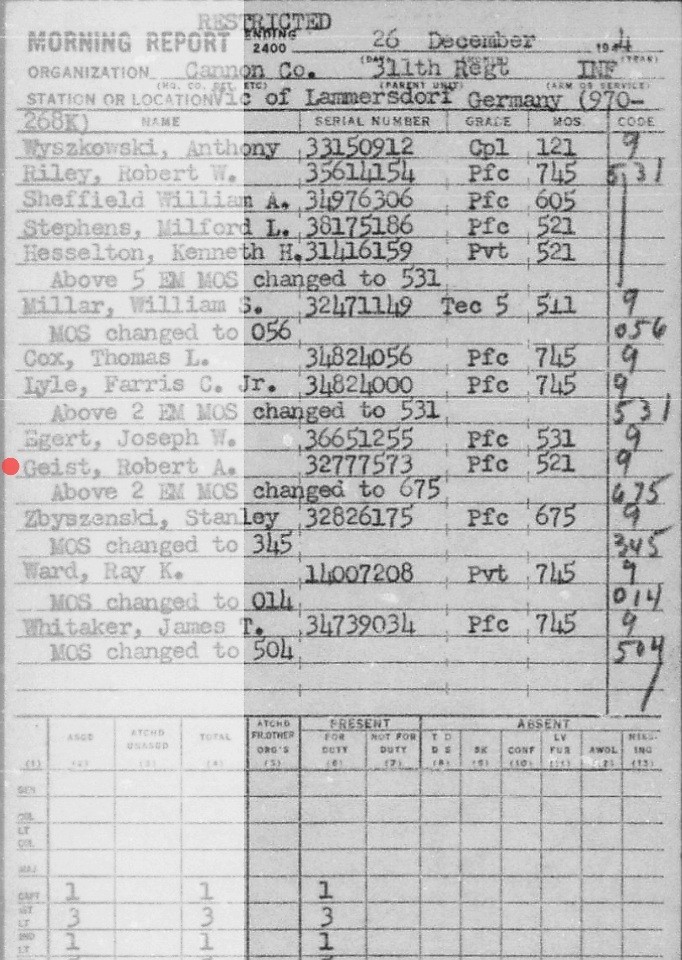 RESTRICTED
MORNING REPORT ENDING 2400 26 December 1944
(DAY) (MONTH) (YEAR)
ORGANIZATION Cannon Co. 311th Regt INF
(HQ. CO. DET. ETC) (PARENT UNIT) (ARM OR SERVICE)
STATION OR LOCATION Vic of Lammersdorf Germany (970-
268K) NAME SERIAL NUMBER GRADE MOS CODE
Wyszkowski, Anthony 33150912 Cpl 121 9
Riley, Robert W. 35614154 Pfc 745 531
Sheffield William A. 34976306 Pfc 605
Stephens, Milford L. 38175186 Pfc 521
Hesselton, Kenneth H. 31416159 Pvt 521
Above 5 EM MOS changed to 531
Millar, William S. 32471149 Tec 5 511 9
MOS changed to 056 056
Cox, Thomas L. 34824056 Pfc 745 9
Lyle, Farris C. Jr. 34824000 Pfc 745 9
Above 2 EM MOS changed to 531 531
Egert, Joseph W. 36651255 Pfc 531 9
Geist, Robert A. 32777573 Pfc 521 9
Above 2 EM MOS changed to 675 675
Zbyszenski, Stanley 32826175 Pfc 675 9
MOS changed to 345 345
Ward, Ray K. 14007208 Pvt 745 9
MOS changed to 014 014
Whitaker, James T. 34739034 Pfc 745 9
MOS changed to 504 504
ATCHD FR.OTHER ORG'S PRESENT ABSENT
ASGD ATCHD UNASGD TOTAL FOR DUTY NOT FOR DUTY T D D S SK CONF LV FUR AWOL MISS-ING
(1) (2) (3) (4) (5) (6) (7) (8) (9) (10) (11) (12) (13)
GEN
COL
LT COL
MAJ
CAPT 1 1 1
1ST LT 3 3 3
2ND LT 1 1 1